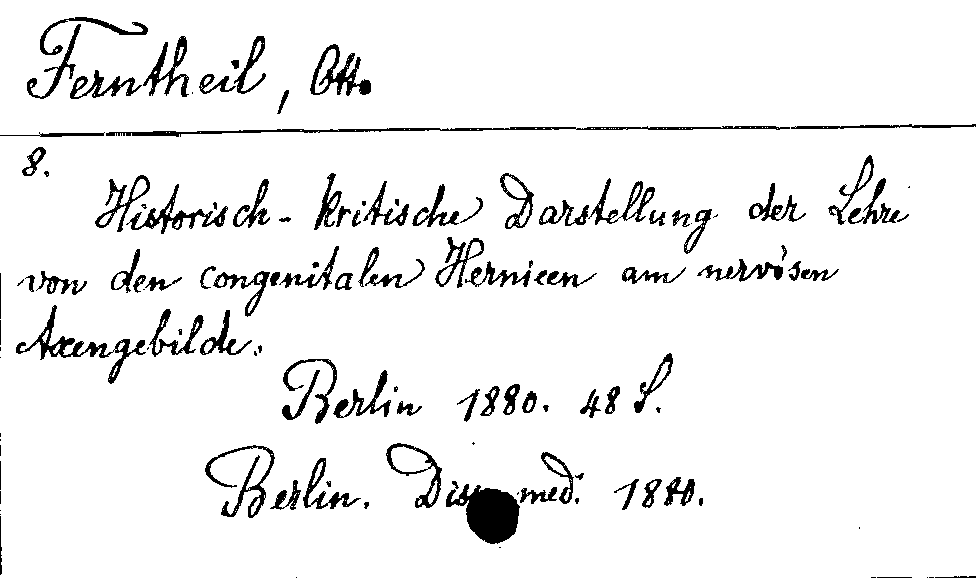 Ferntheil, Otto
8.
Historisch-kritische Darstellung der Lehre
von den congenitalen Hernieen am nervösen
Axengebilde.
Berlin 1880. 48 S.
Berlin. Diss. med. 1880.